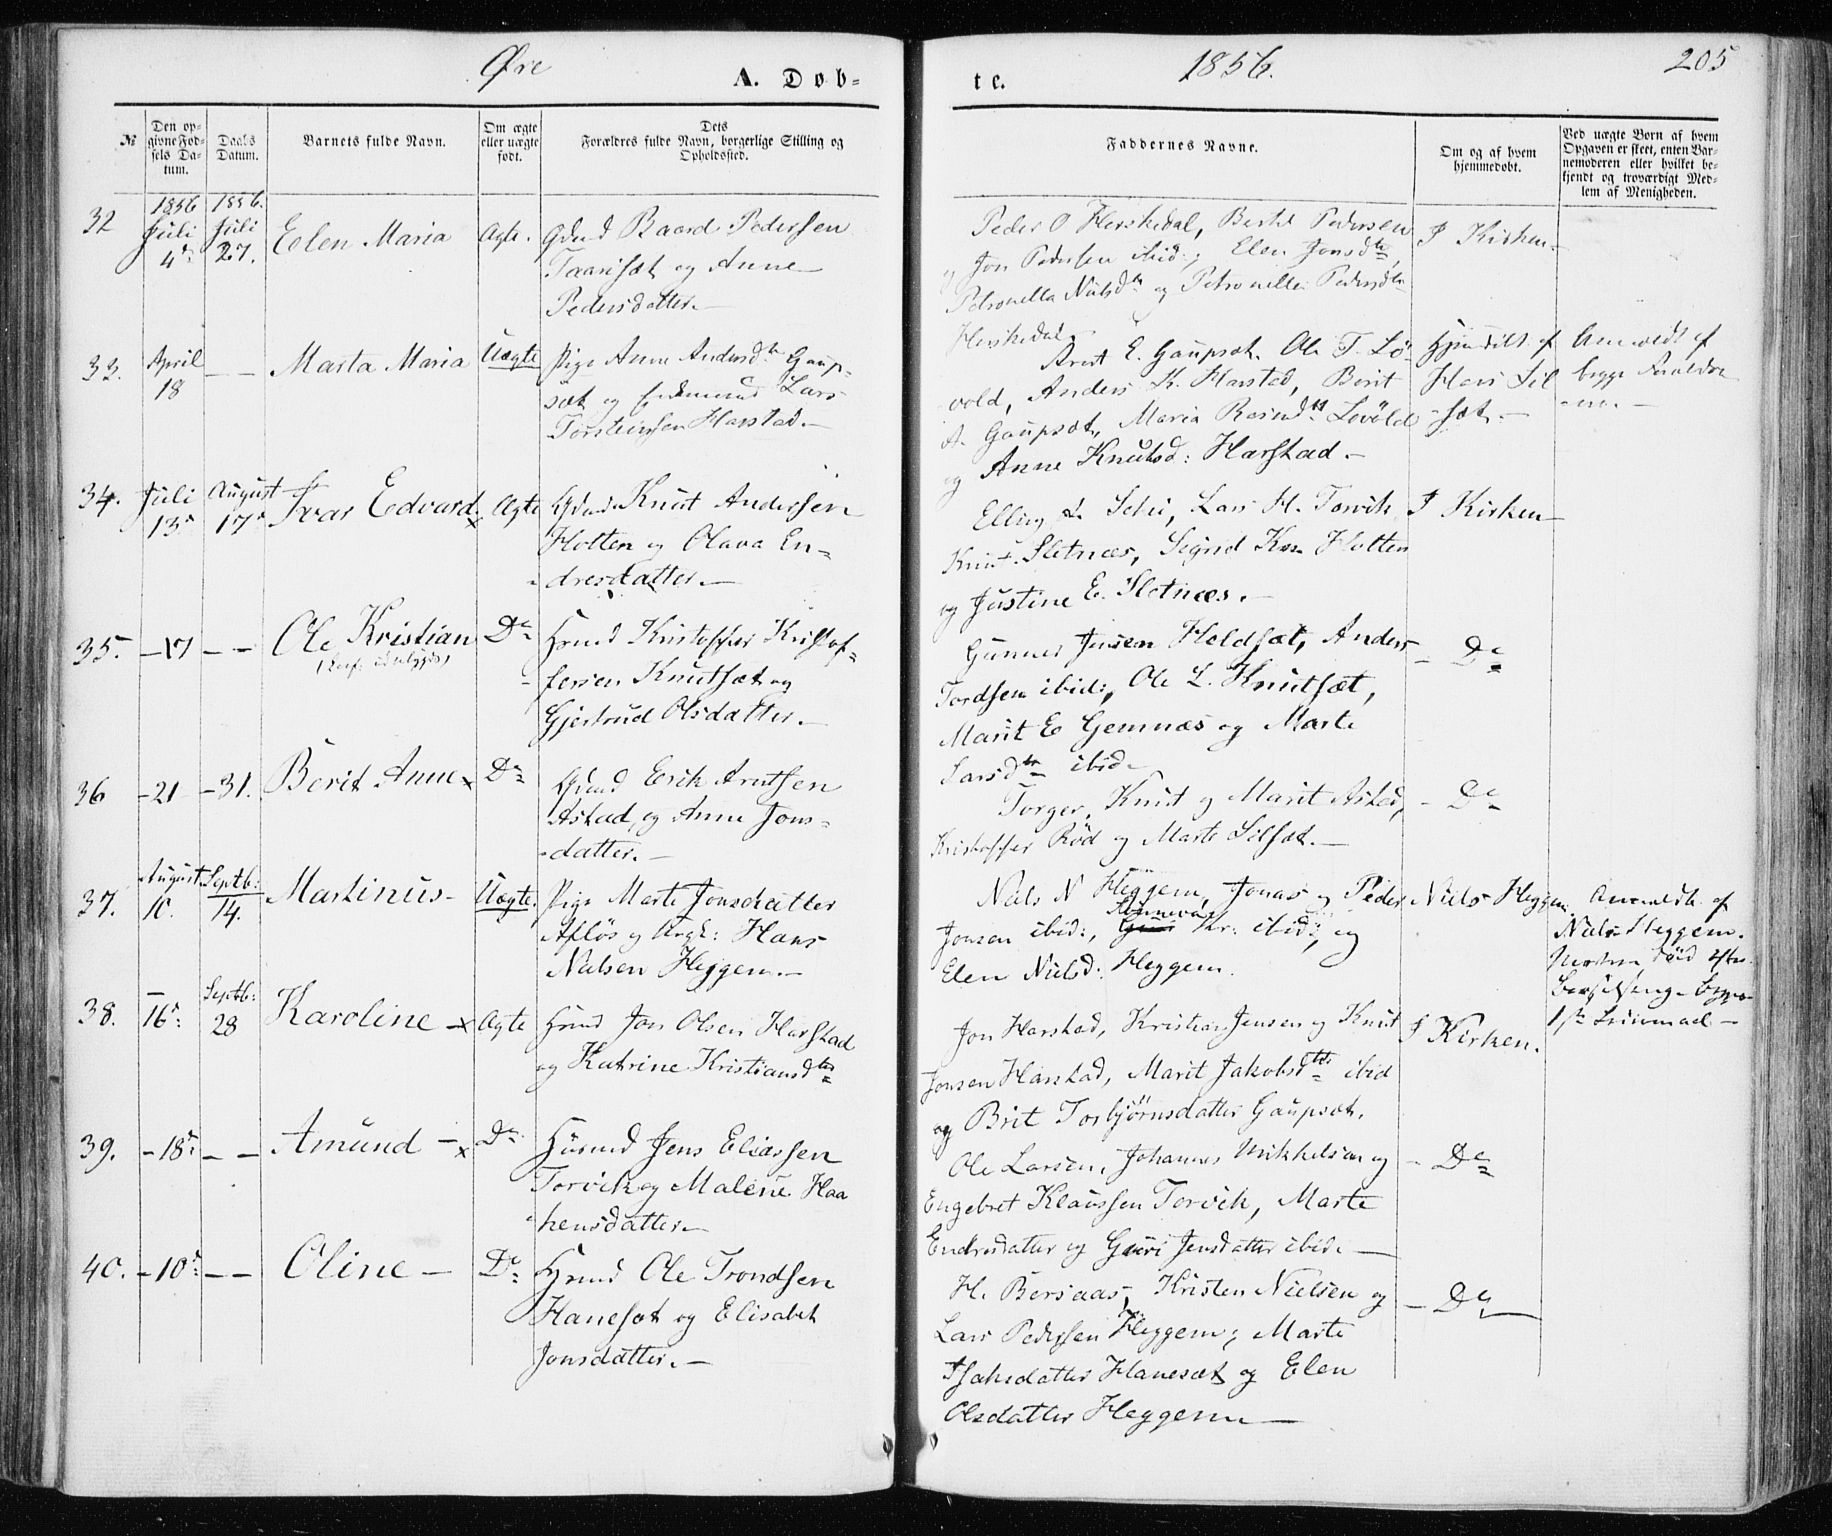 Øre
A. Døb-
te.
1856.
205
№
Den opgivne Fødsels Datum.
Daabs Datum.
Barnets fulde Navn.
Om ægte eller uægte født.
Dets Forældres fulde Navn, borgerlige Stilling og Opholdssted.
Faddernes Navne.
Om og af hvem hjemmedøbt.
Ved uægte Børn af hvem Opgaven er skeet, enten Barnemoderen eller hvilket bekjendt og troværdigt Medlem af Menigheden.
32 1856 Juli 4de 1856. Juli 27. Elen Maria Ægte. Gbmd Baard Pedersen
Taarisæt og Anne
Pedersdatter.
Peder O Herskedal, Bertel Pedersen
og Jon Pedersen ibid:, Elen Jonsdtr,
Petronella Nielsdtr og Petronelle Pedersdtr
Herskedal.
I Kirken
33. April 18 — — Marta Maria Uægte Pige Anne Andersdtr Gaup-
sæt og Lars
Torsteinsen Harstad.
Arnt E. Gaupsæt. Ole T. Lø-
vold, Anders K. Harstad, Berit
A. Gaupsæt, Maria Rasmdtr Løvold
og Anne Knutsd: Harstad.
Hjemdøbt af
Hans Sil-
sæt.
Anmeldt af
begge Forældre-
ne.
34. Juli 13de August 17de Ivar Edvard x Ægte Gbmd Knut Andersen
Hotten og Olava En-
dresdatter.
Elling L Schei, Lars H. Torvik
Knut Sletnæs, Signd Hotten
og Justine E. Sletnæs.
I Kirken
35. — 17 — — Ole Kristian Do Hmd Kristoffer Kristof-
fersen Knutsæt og
Gjertrud Olsdatter.
Gunner Jensen Heldsæt, Anders
Tordsen ibid:, Ole L. Knutsæt,
Marit E Gemnæs og Marte
Larsdtr ibid.
— Do
36 — 21 — 31. Berit Anne x Do Gbmd Erik Arntsen
Astad, og Anne Jons-
datter.
Torger, Knut og Marit Astad,
Kristoffer Rød og Marte Silsæt.
— Do
37. August 10. Septb: 14. Martinus Uægte. Pige Marte Jonsdatter
Asløs og Ungk: Hans
Nielsen Heggem.
Niels N Heggem, Jonas og Peder
Jonsen ibid:, Kr: ibid:, og
Elen Nielsd: Heggem.
Niels Heggem.
Anmeldt af
Niels Heggem.
Moderen død efter
Barselseng. begges
1ste Leiermaal
38. — 16de: Septb: 28 Karoline x Ægte Hmd Jon Olsen Harstad
og Katrine Kristiansdtr
Jon Harstad, Kristian Jensen og Knut
Jonsen Harstad, Marit Jakobsdtr ibid
og Brit Torbjørnsdatter Gaupsæt.
I Kirken.
39. — 18de — — Amund x Do Huusmd Jens Eliassen
Torvik og Malene Haa-
kensdatter
Ole Larsen, Johannes Mikkelsen og
Engebret Klaussen Torvik, Marte
Endresdatter og Guri Jensdatter ibid.
— Do
40. — 10de — — Oline — Do Hmd Ole Trondsen
Hanesæt og Elisabet
Jonsdatter.
H. Bersaas, Kristen Nielsen og
Lars Pedersen Heggem, Marte
Isaksdatter Hanesæt og Elen
Olsdatter Heggem
— Do